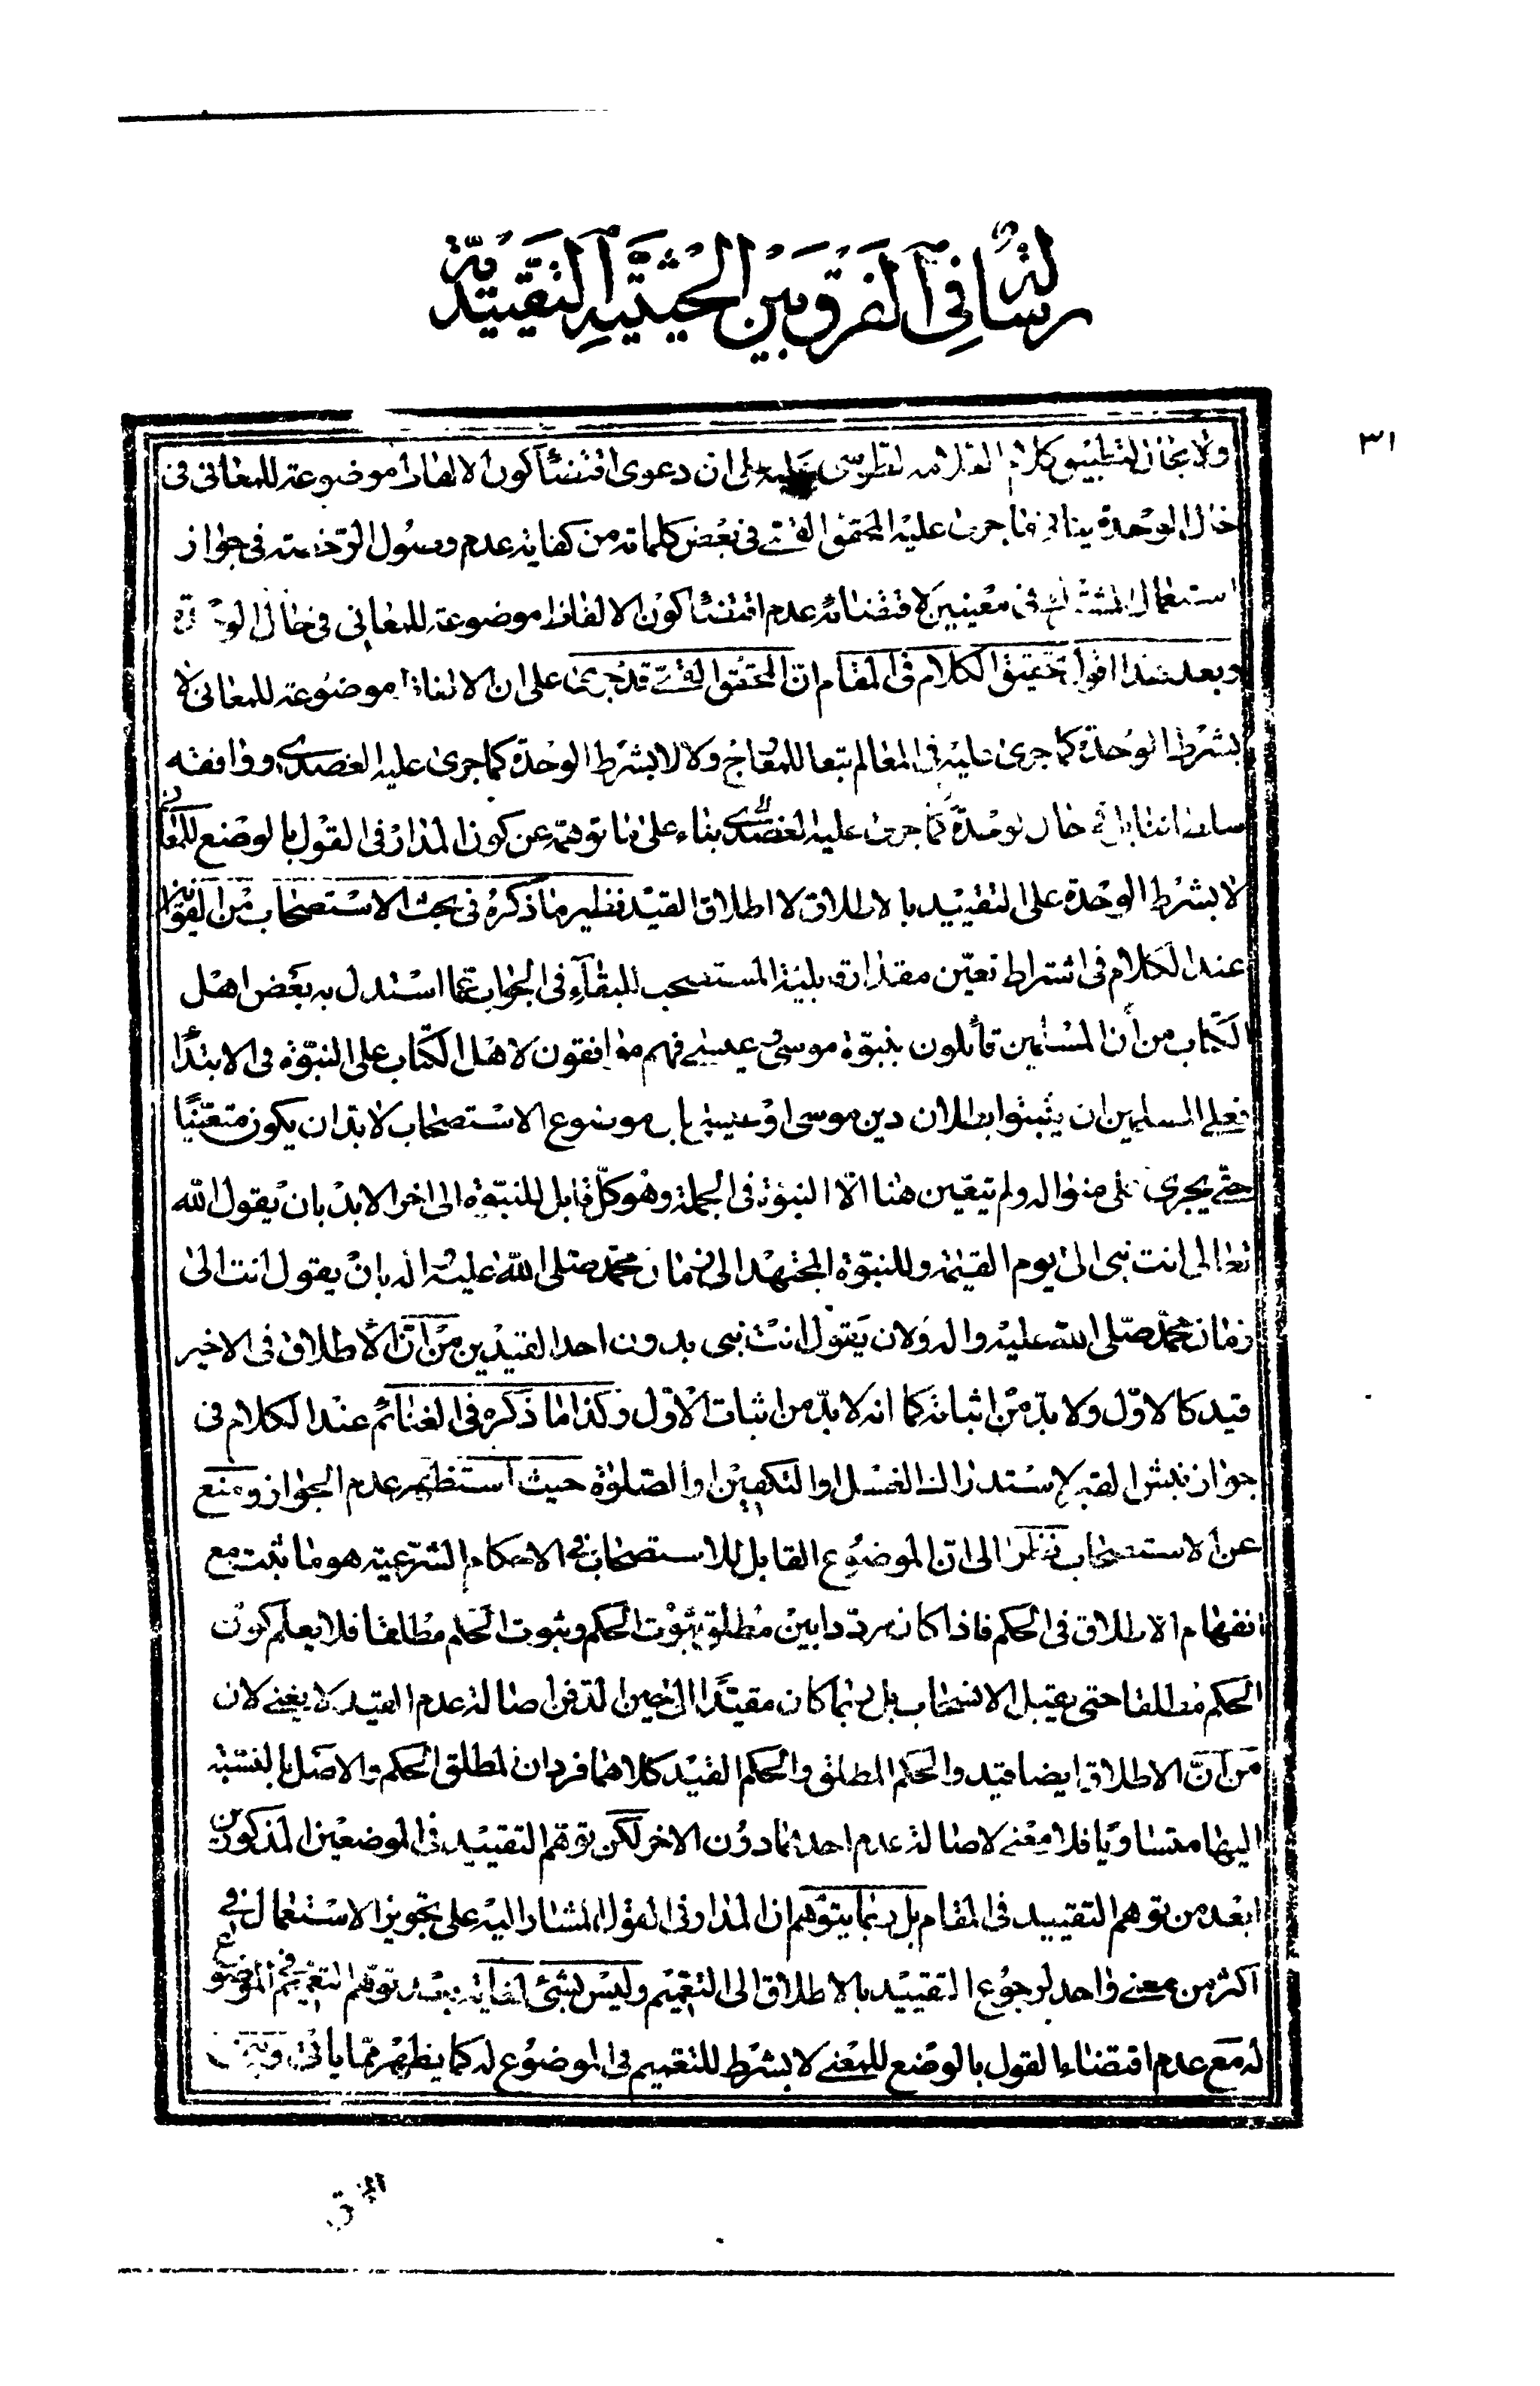 رسالة في الفرق بين الحيثية التقييدية
٣١
ولا مجال لتطبيق كلام العلامه الطوسى عليه على ان دعوى اقتضاء كون الالفاظ موضوعة للمعاني في
حال الوحدة ينافي ما جرى عليه المحقق القمي في بعض كلماته من كفاية عدم وصول الرخصة في جواز
استعمال المشترك في معنيين لاقتضائه عدم اقتضاء كون الالفاظ موضوعة للمعاني في حال الوحدة
وبعد هذا اقول تحقيق الكلام في المقام ان المحقق القمي قد جرى على ان الالفاظ موضوعة للمعاني لا
بشرط الوحدة كما جرى عليه في المعالم تبعا للمفتاح ولا لا بشرط الوحدة كما جرى عليه العضدي ووافقه
حال الوحدة كما جرى عليه العضدي بناء على ما توهمه عن كون المدار في القول بالوضع للمعاني
لا بشرط الوحدة على التقييد بالاطلاق لا اطلاق القيد نظير ما ذكره في بحث الاستصحاب من القوانين
عند الكلام في اشتراط تعيّن مقدار قابلية المستصحب للبقاء في الجواب عما استدل به بعض اهل
الكتاب من أن المسلمين قائلون بنبوّة موسى وعيسى فهم موافقون لاهل الكتاب على النبوّة في الابتداء
فعلى المسلمين ان يثبتوا بطلان دين موسى او عيسى بان موضوع الاستصحاب لابد ان يكون متعيّنًا
حتى يجرى على منواله ولم يتعين هنا الّا النبوّة في الجملة وهو كلّ قابل للنبوّة الى اخر الابد بان يقول الله
تعالى انت نبى الى يوم القيمة وللنبوّة الى زمان محمّد صلى الله عليه واله بان يقول انت الى
زمان محمّد صلى الله عليه واله ولان يقول انت نبى بدون احد القيدين من انّ الاطلاق في الاخير
قيد كالاوّل ولا بدّ من اثباته كما انه لا بدّ من اثبات الاوّل وكذا ما ذكره في الغنائم عند الكلام في
جواز نبش القبر لاستدراك الغسل او التكفين او الصلوة حيث استظهر عدم الجواز ومنع
عن الاستصحاب نظرا الى انّ الموضوع القابل للاستصحاب في الاحكام الشرعية هو ما ثبت مع
انفهام الاطلاق في الحكم فاذا كان مردّدا بين مطلق ثبوت الحكم وثبوت الحكم مطلقا فلا يعلم كون
الحكم مطلقا حتى يقبل الانسحاب بل ربما كان مقيّدا الى حين الدفن اصالة عدم القيد لا يغنى لان
من انّ الاطلاق ايضا قيد والحكم المطلق والحكم المقيد كلاهما فردان لمطلق الحكم والاصل بالنسبة
اليهما متساويا فلا معنى لاصالة عدم احدهما دون الاخر لكن توهم التقييد في الموضعين المذكورين
ابعد من توهم التقييد في المقام بل ربما يتوهم ان المدار في القول المشار اليه على تجويز الاستعمال في
اكثر من معنى واحد لرجوع التقييد بالاطلاق الى التعميم وليس بشئ لغاية بعد توهم التعميم في الموضوع
له مع عدم اقتضاء القول بالوضع للمعنى لا بشرط للتعميم في الموضوع له كما يظهر مما ياتى